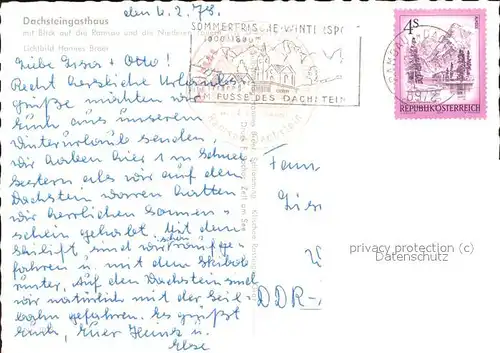 Dachsteingasthaus
mit Blick auf die Ramsau und die Niederen
Lichtbild Hannes Brauer
den 6.2.78.
SOMMERFRISCHE-WINTERSPO
AM FUSSE DES DACHSTEIN
RAMSAU AM DA
8972
4S
REPUBLIK ÖSTERREICH
Liebe Esser + Otto!
Recht herzliche Urlaubs-
grüße möchten wir
Euch aus unserem
Winterurlaub senden,
wir haben hier 1 m Schnee
gestern als wir auf dem
Dachstein waren hatten
wir herrlichen Sonnen-
schein gehabt. Mit dem
Skilift sind wir schon raufge-
fahren u. mit dem Skibob
runter. Auf den Dachstein sind
wir natürlich mit der Seil-
bahn gefahren. Es grüßt
Euch, Euer Heinz u.
Else
Fam
DDR-
privacy protection (c)
Datenschutz